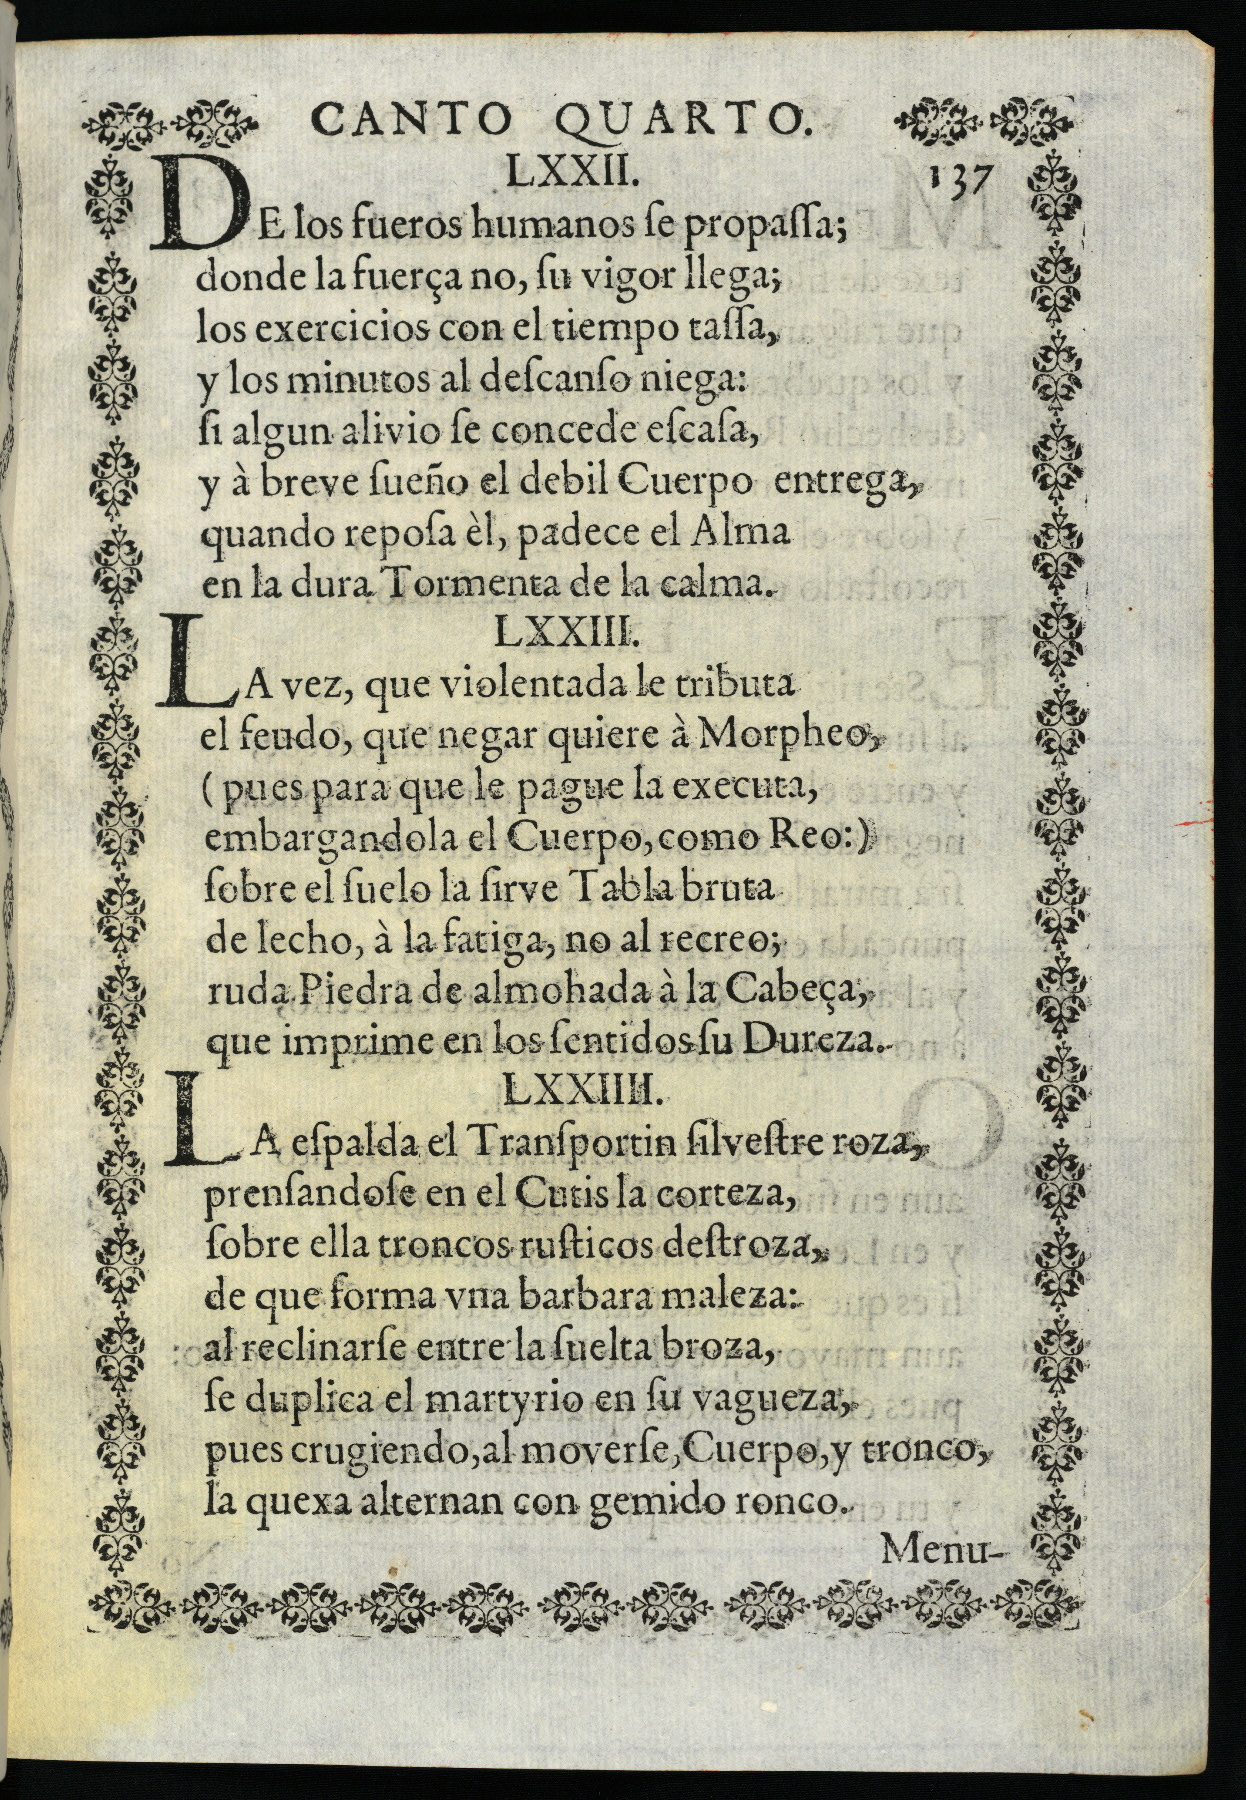 CANTO QUARTO.
LXXII.
137
DE los fueros humanos ſe propaſſa;
donde la fuerça no, ſu vigor llega;
los exercicios con el tiempo taſſa,
y los minutos al deſcanſo niega:
ſi algun alivio ſe concede eſcaſa,
y à breve ſueño el debil Cuerpo entrega,
quando repoſa èl, padece el Alma
en la dura Tormenta de la calma.
LXXIII.
LA vez, que violentada le tributa
el feudo, que negar quiere à Morpheo,
(pues para que le pague la executa,
embargandola el Cuerpo, como Reo:)
ſobre el ſuelo la ſirve Tabla bruta
de lecho, à la fatiga, no al recreo;
ruda Piedra de almohada à la Cabeça,
que imprime en los ſentidos ſu Dureza.
LXXIIII.
LA eſpalda el Tranſportin ſilveſtre roza,
prenſandoſe en el Cutis la corteza,
ſobre ella troncos ruſticos deſtroza,
de que forma vna barbara maleza:
al reclinarſe entre la ſuelta broza,
ſe duplica el martyrio en ſu vagueza,
pues crugiendo, al moverſe, Cuerpo, y tronco,
la quexa alternan con gemido ronco.
Menu-